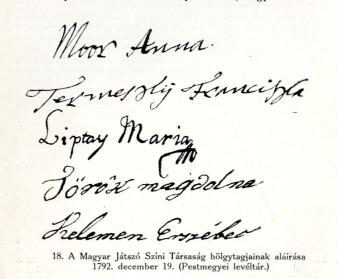 Moor Anna.
Termeszlÿ Franciszla
Liptay Maria
Török magdolna
Kelemen Erszébet
18. A Magyar Játszó Szini Társaság hölgytagjainak aláírása
1792. december 19. (Pestmegyei levéltár.)